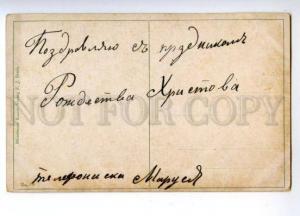 Поздравляю съ праздникомъ
Рождества Христова
телефониска Маруся
NOT FOR COPY